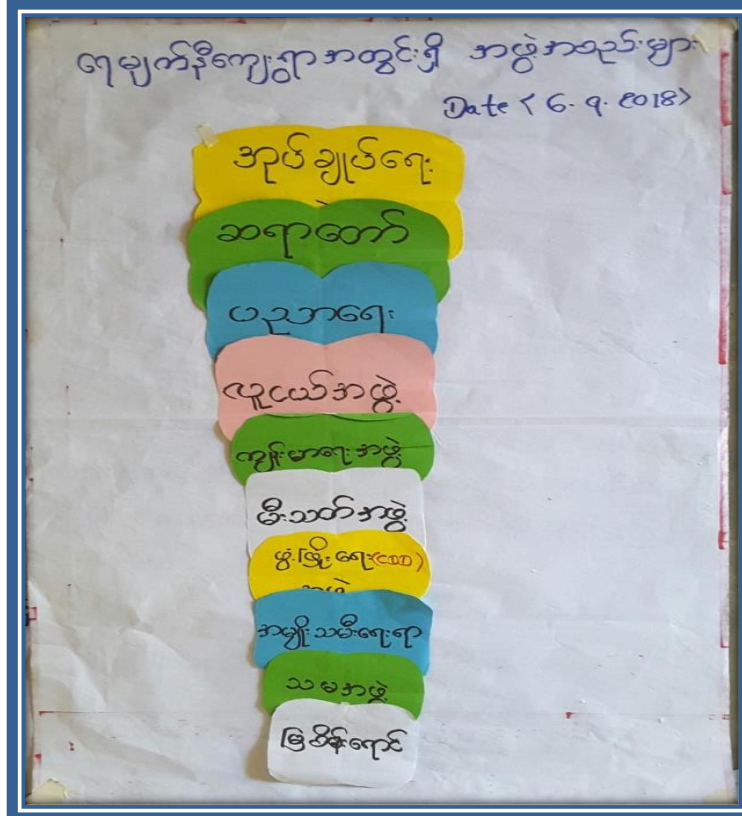 ရေမျက်နီကျေးရွာအတွင်းရှိ အဖွဲ့အစည်းများ
Date < 6. 9. 2018>
အုပ်ချုပ်ရေး
ဆရာတော်
ပညာရေး
လူငယ်အဖွဲ့
ကျန်းမာရေးအဖွဲ့
မီးသတ်အဖွဲ့
ဖွံ့ဖြိုးရေး(CDD)
အဖွဲ့
အမျိုးသမီးရေးရာ
သမအဖွဲ့
မြစိမ်းရောင်